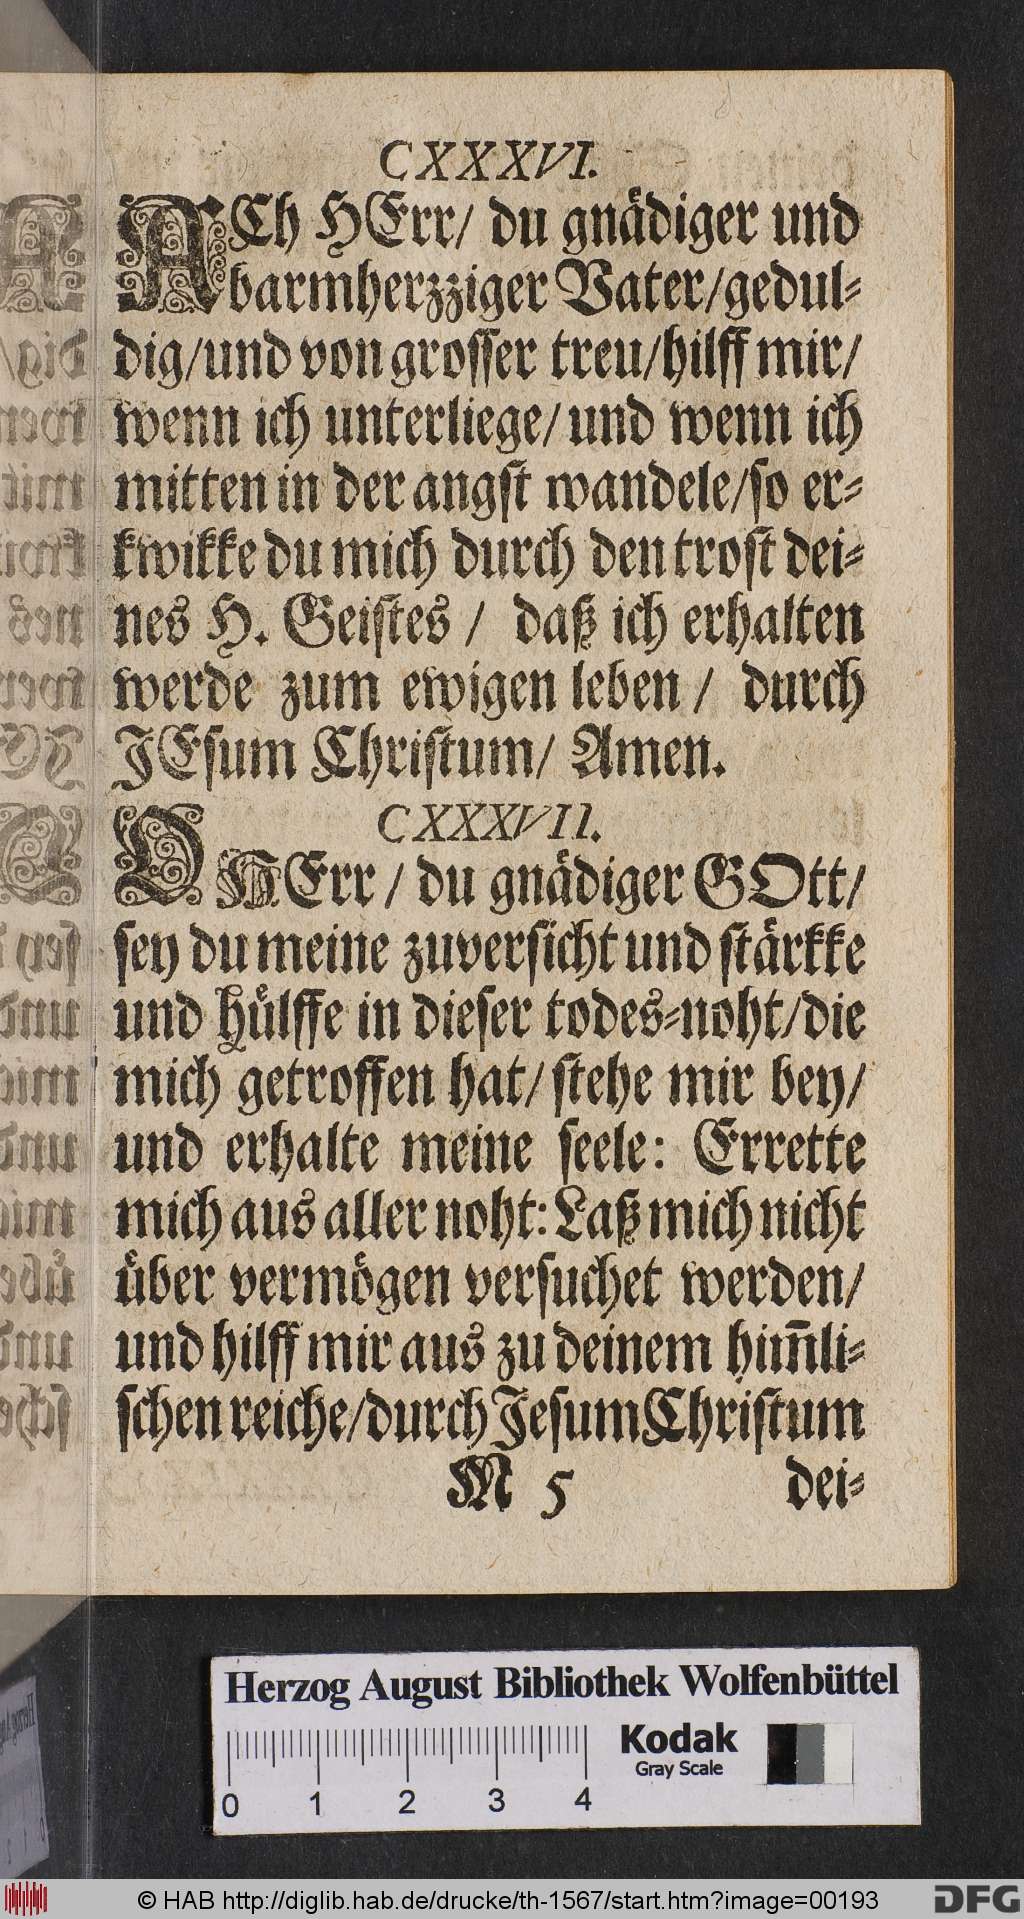 CXXXVI.
ACh HErr/ du gnädiger und
barmherzziger Vater/gedul-
dig/und von grosser treu/hilff mir/
wenn ich unterliege/und wenn ich
mitten in der angst wandele/so er-
kwikke du mich durch den trost dei-
nes H. Geistes / daß ich erhalten
werde zum ewigen leben / durch
JEsum Christum/ Amen.
CXXXVII.
O HErr / du gnädiger GOtt/
sey du meine zuversicht und stärkke
und hülffe in dieser todes-noht/die
mich getroffen hat/ stehe mir bey/
und erhalte meine seele: Errette
mich aus aller noht: Laß mich nicht
über vermögen versuchet werden/
und hilff mir aus zu deinem him̅li-
schen reiche/durch Jesum Christum
M 5 dei-
Herzog August Bibliothek Wolfenbüttel
Kodak
Gray Scale
0 1 2 3 4
© HAB http://diglib.hab.de/drucke/th-1567/start.htm?image=00193
DFG